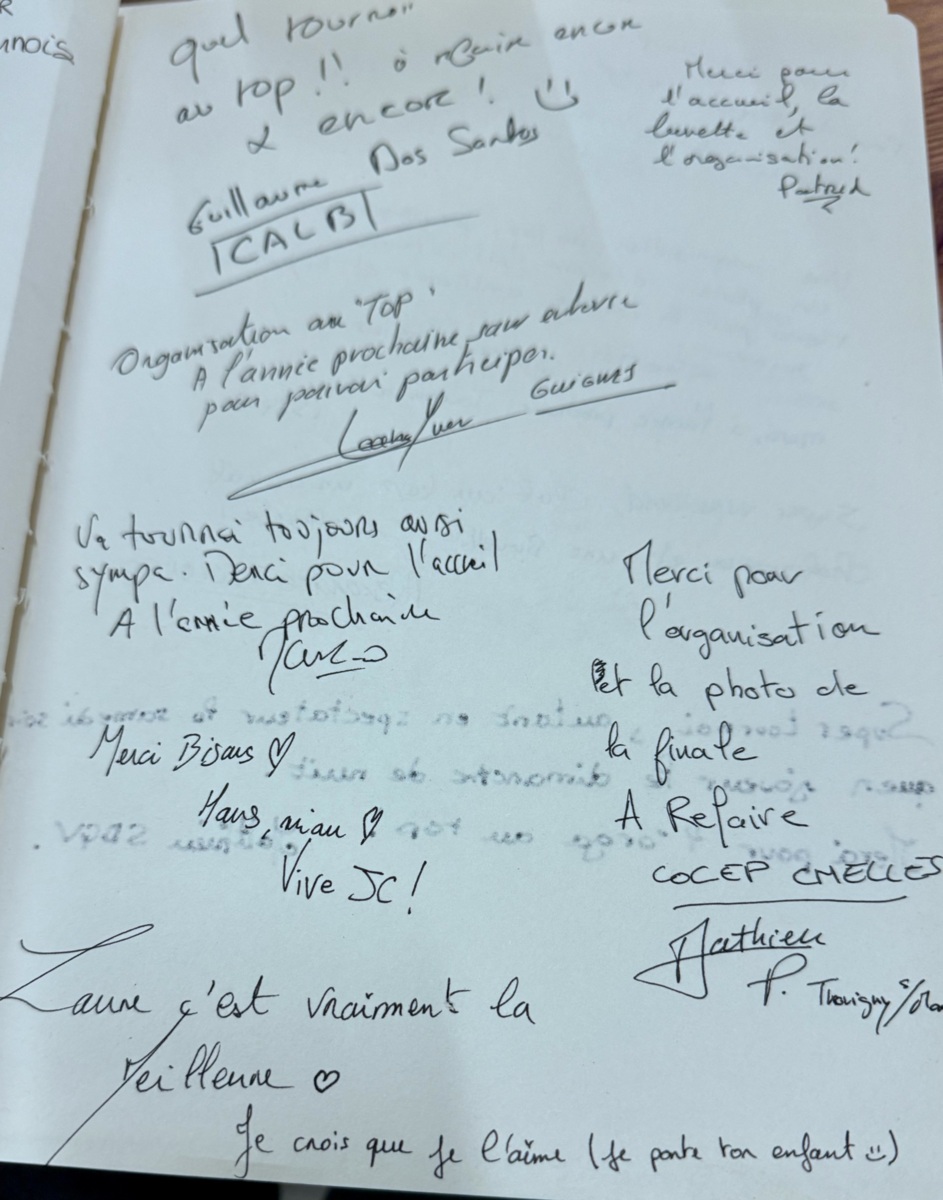 nnois
quel tournoi
au top !! à refaire encore
& encore ! :)
Guillaume Dos Santos
CALB
Merci pour
l'accueil, la
buvette et
l'organisation!
Organisation au "TOP"
A l'année prochaine
pour pouvoir participer.
Un tournoi toujours aussi
sympa. Merci pour l'accueil
A l'année prochaine
Merci pour
l'organisation
et la photo de
la finale
A Refaire
COCEP
Mathieu
P.
Merci Bisous ♡
♡
Vive JC !
Laure c'est vraiment la
Meilleure ♡
Je crois que je l'aime (Je porte ton enfant :))